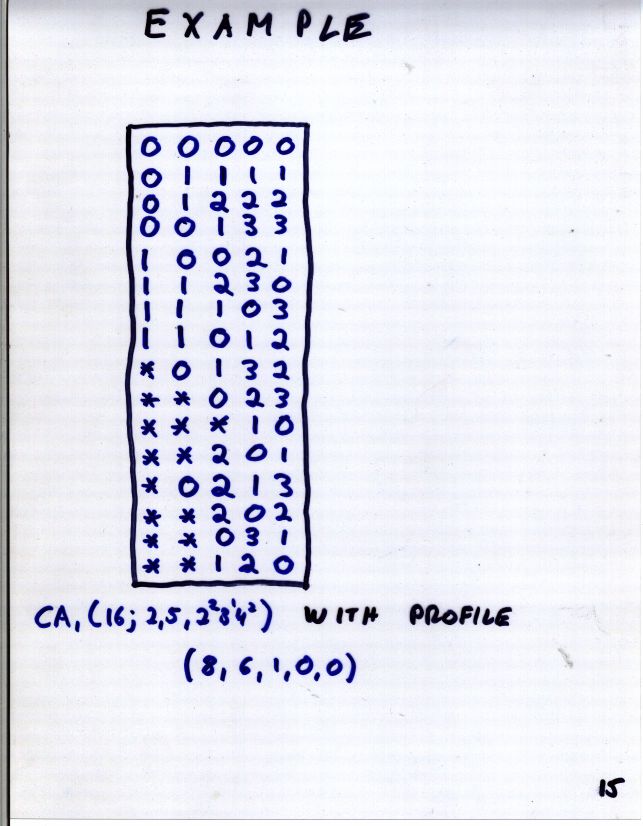 EXAMPLE
0 0 0 0 0
0 1 1 1 1
0 1 2 2 2
0 0 1 3 3
1 0 0 2 1
1 1 2 3 0
1 1 1 0 3
1 1 0 1 2
* 0 1 3 2
* * 0 2 3
* * * 1 0
* * 2 0 1
* 0 2 1 3
* * 2 0 2
* * 0 3 1
* * 1 2 0
CA₁(16; 2,5, 2²3¹4²) WITH PROFILE
(8, 6, 1, 0, 0)
15